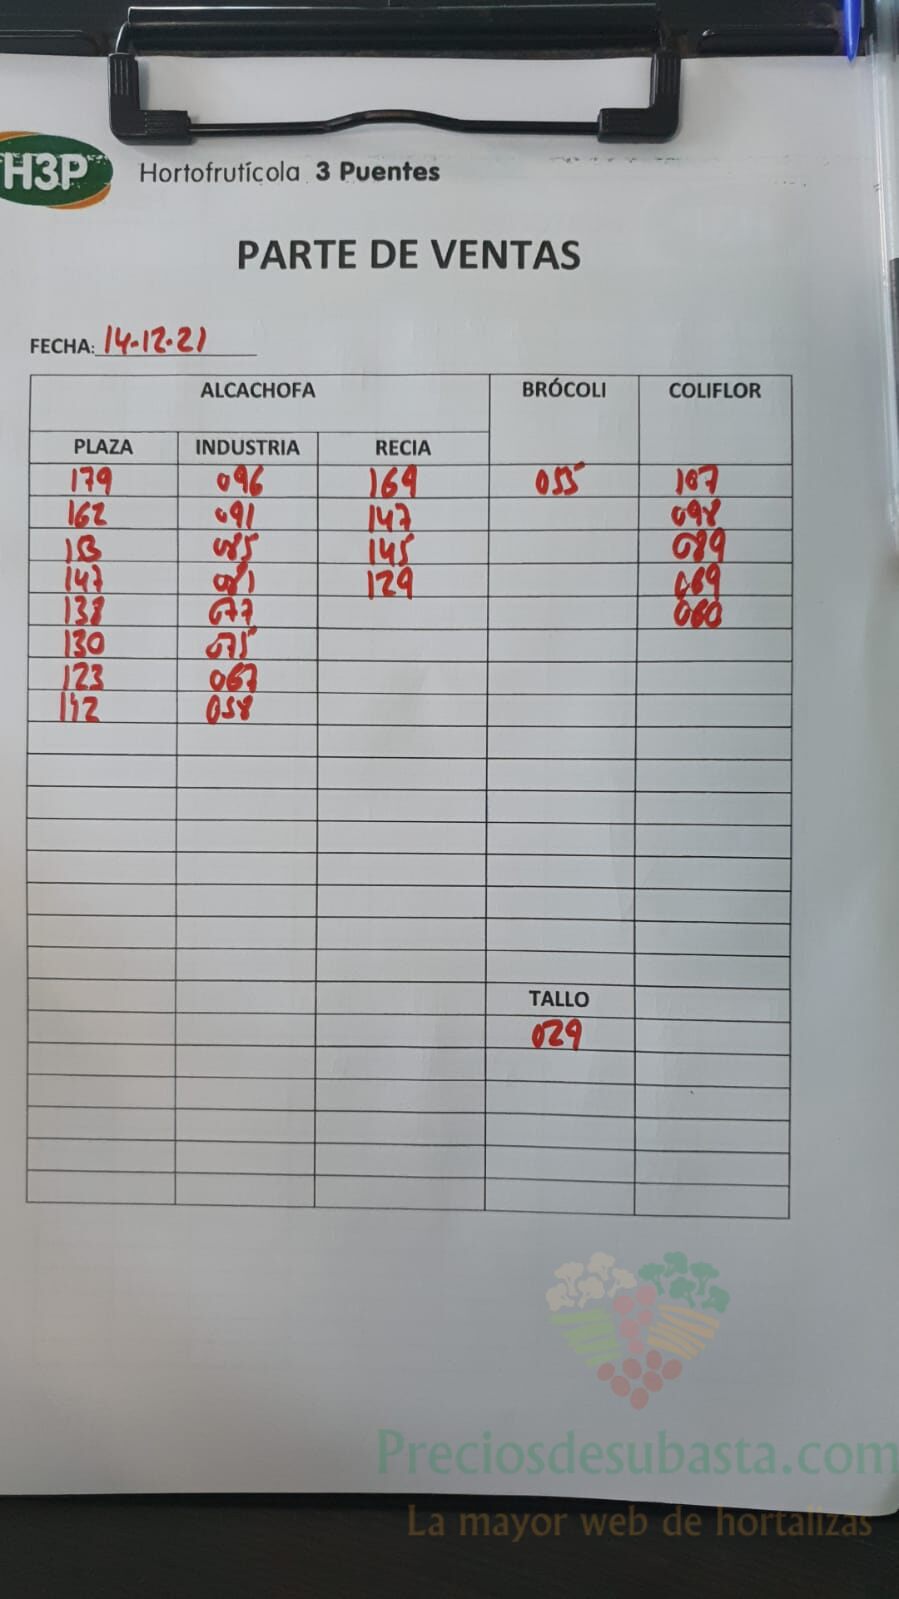 H3P Hortofrutícola 3 Puentes
PARTE DE VENTAS
FECHA: 14-12-21
ALCACHOFA BRÓCOLI COLIFLOR
PLAZA INDUSTRIA RECIA
179 096 169 055 107
162 091 147 098
085 145 089
147 081 129 069
138 077 060
130 075
123 067
112 058
TALLO
029
Preciosdesubasta.com
La mayor web de hortalizas